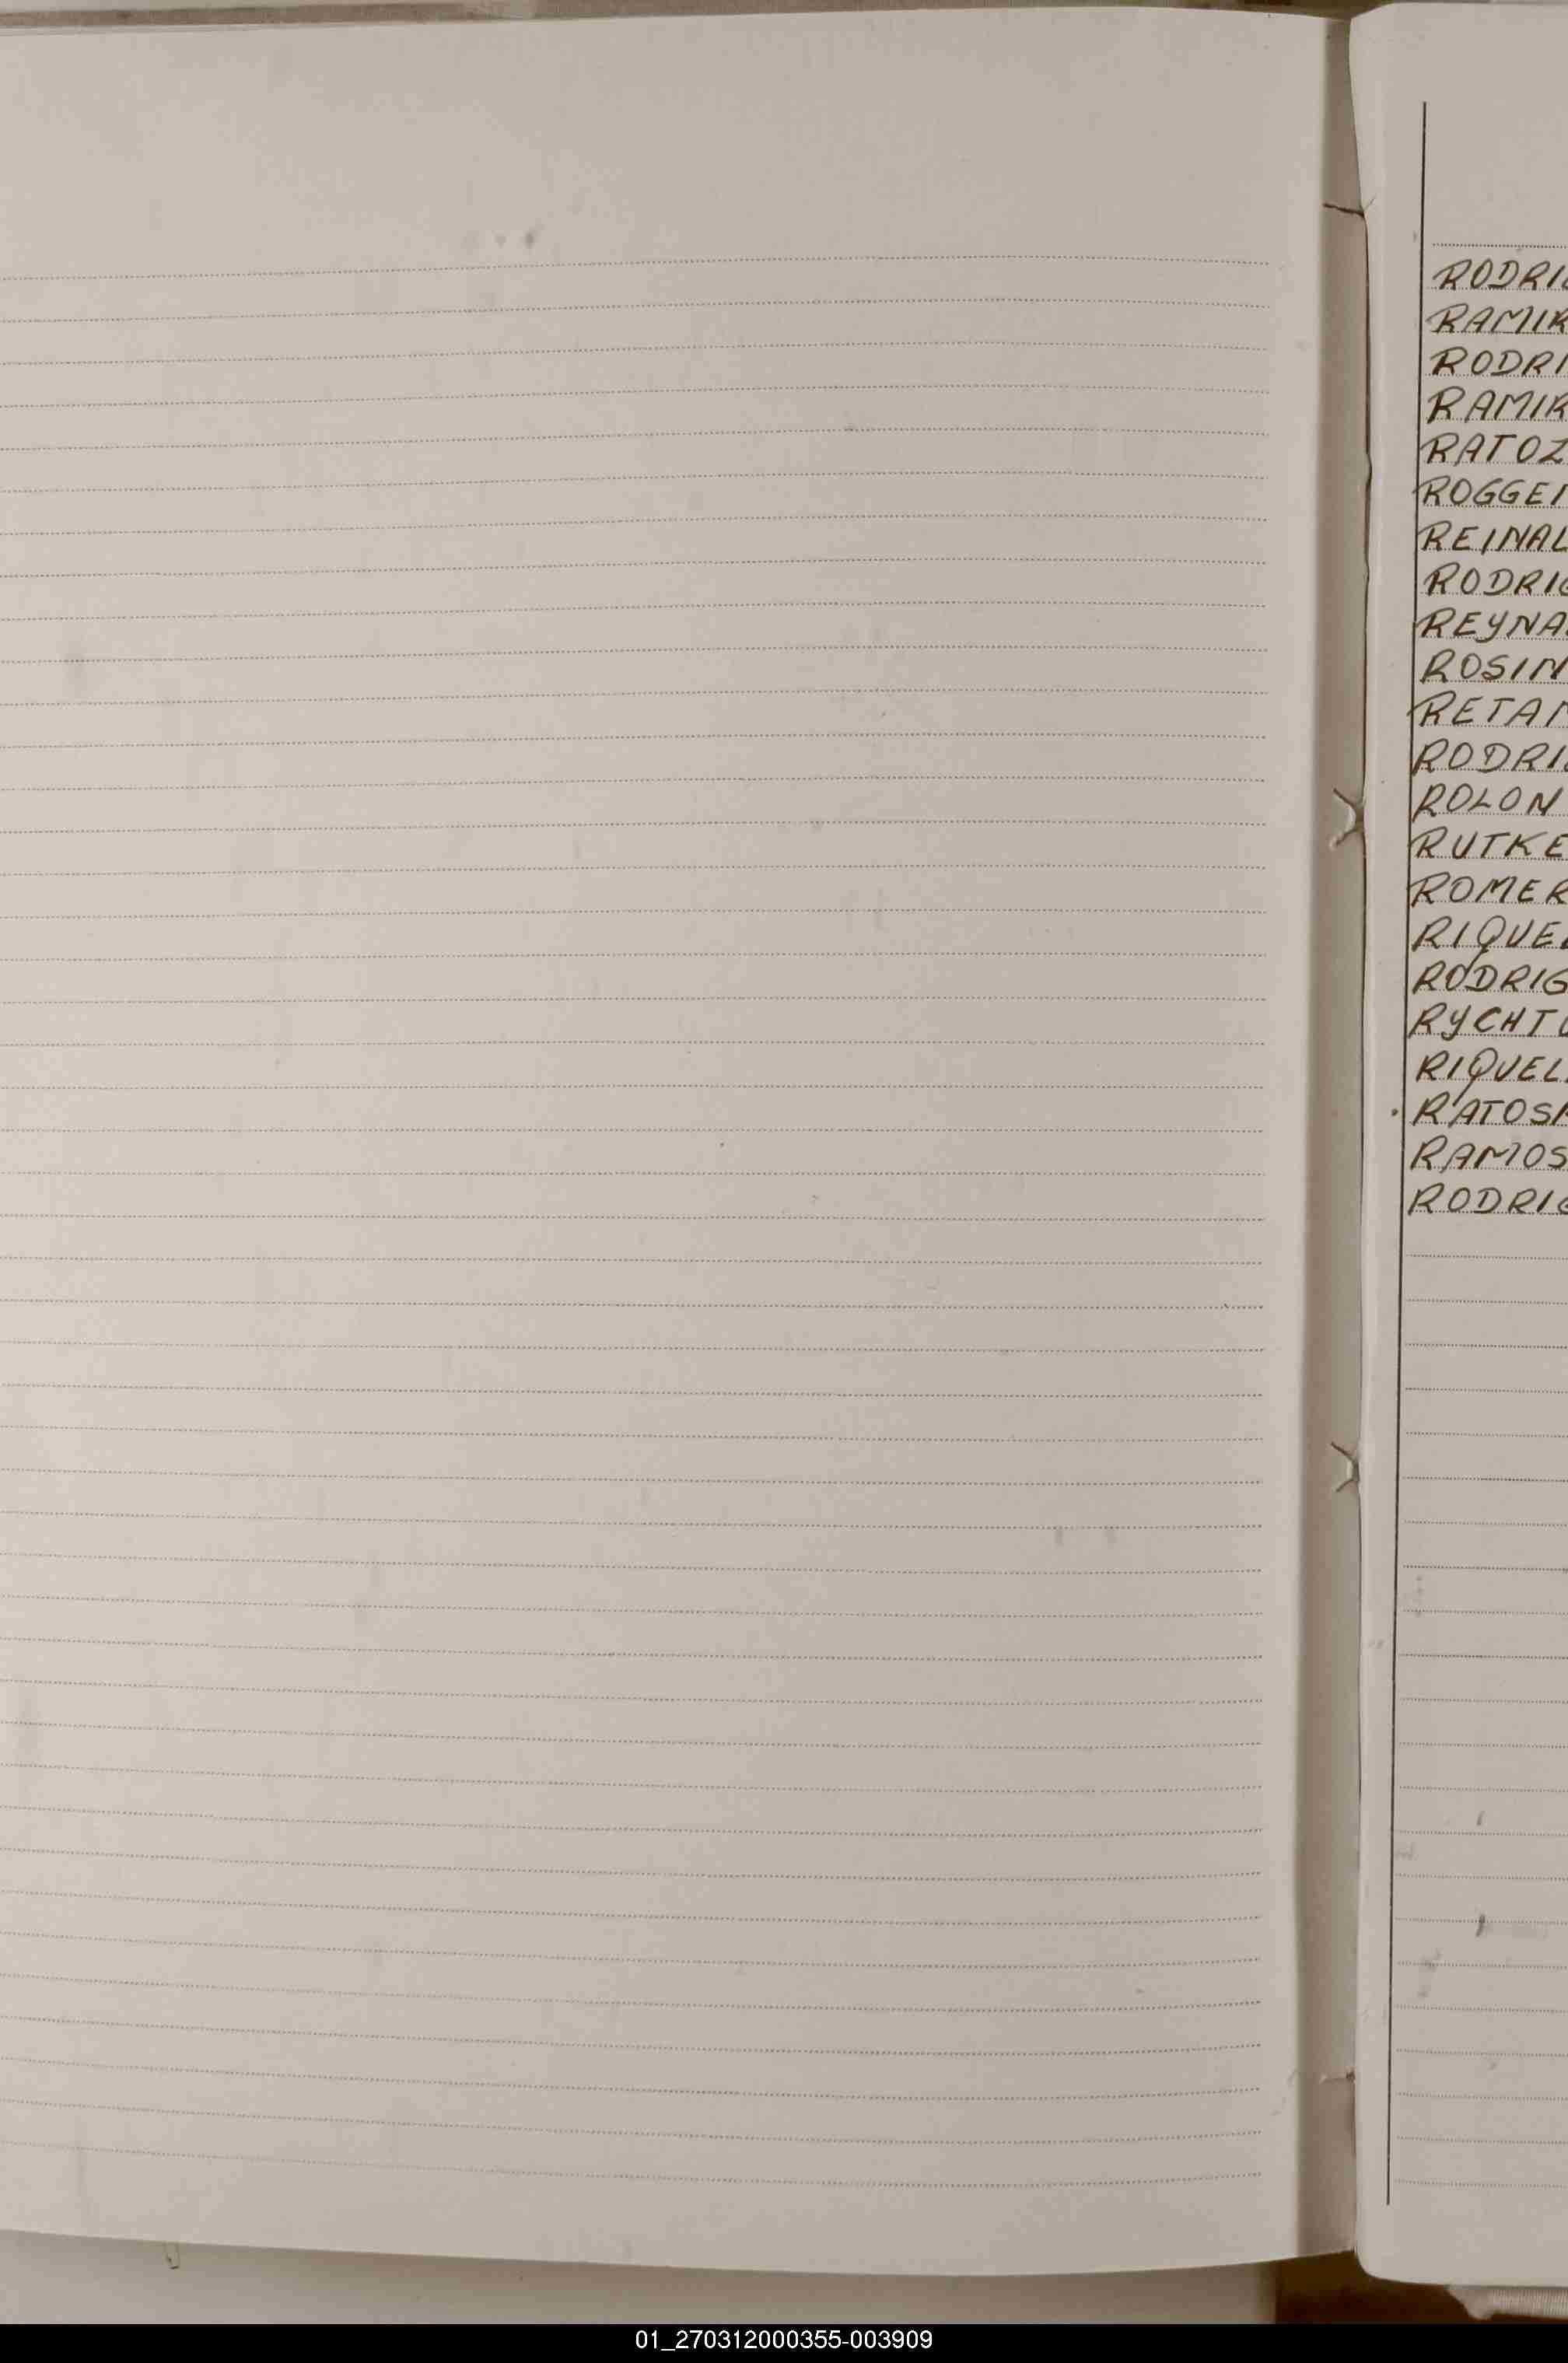 RODRI
RAMIR
RODRI
RAMIR
RATOZ
ROGGEI
REINAL
RODRIG
REYNA
ROSIN
RETAM
RODRI
ROLON
RUTKE
ROMER
RIQUEL
RODRIG
RYCHT
RIQUEL
RATOS
RAMOS
RODRIG
01_270312000355-003909